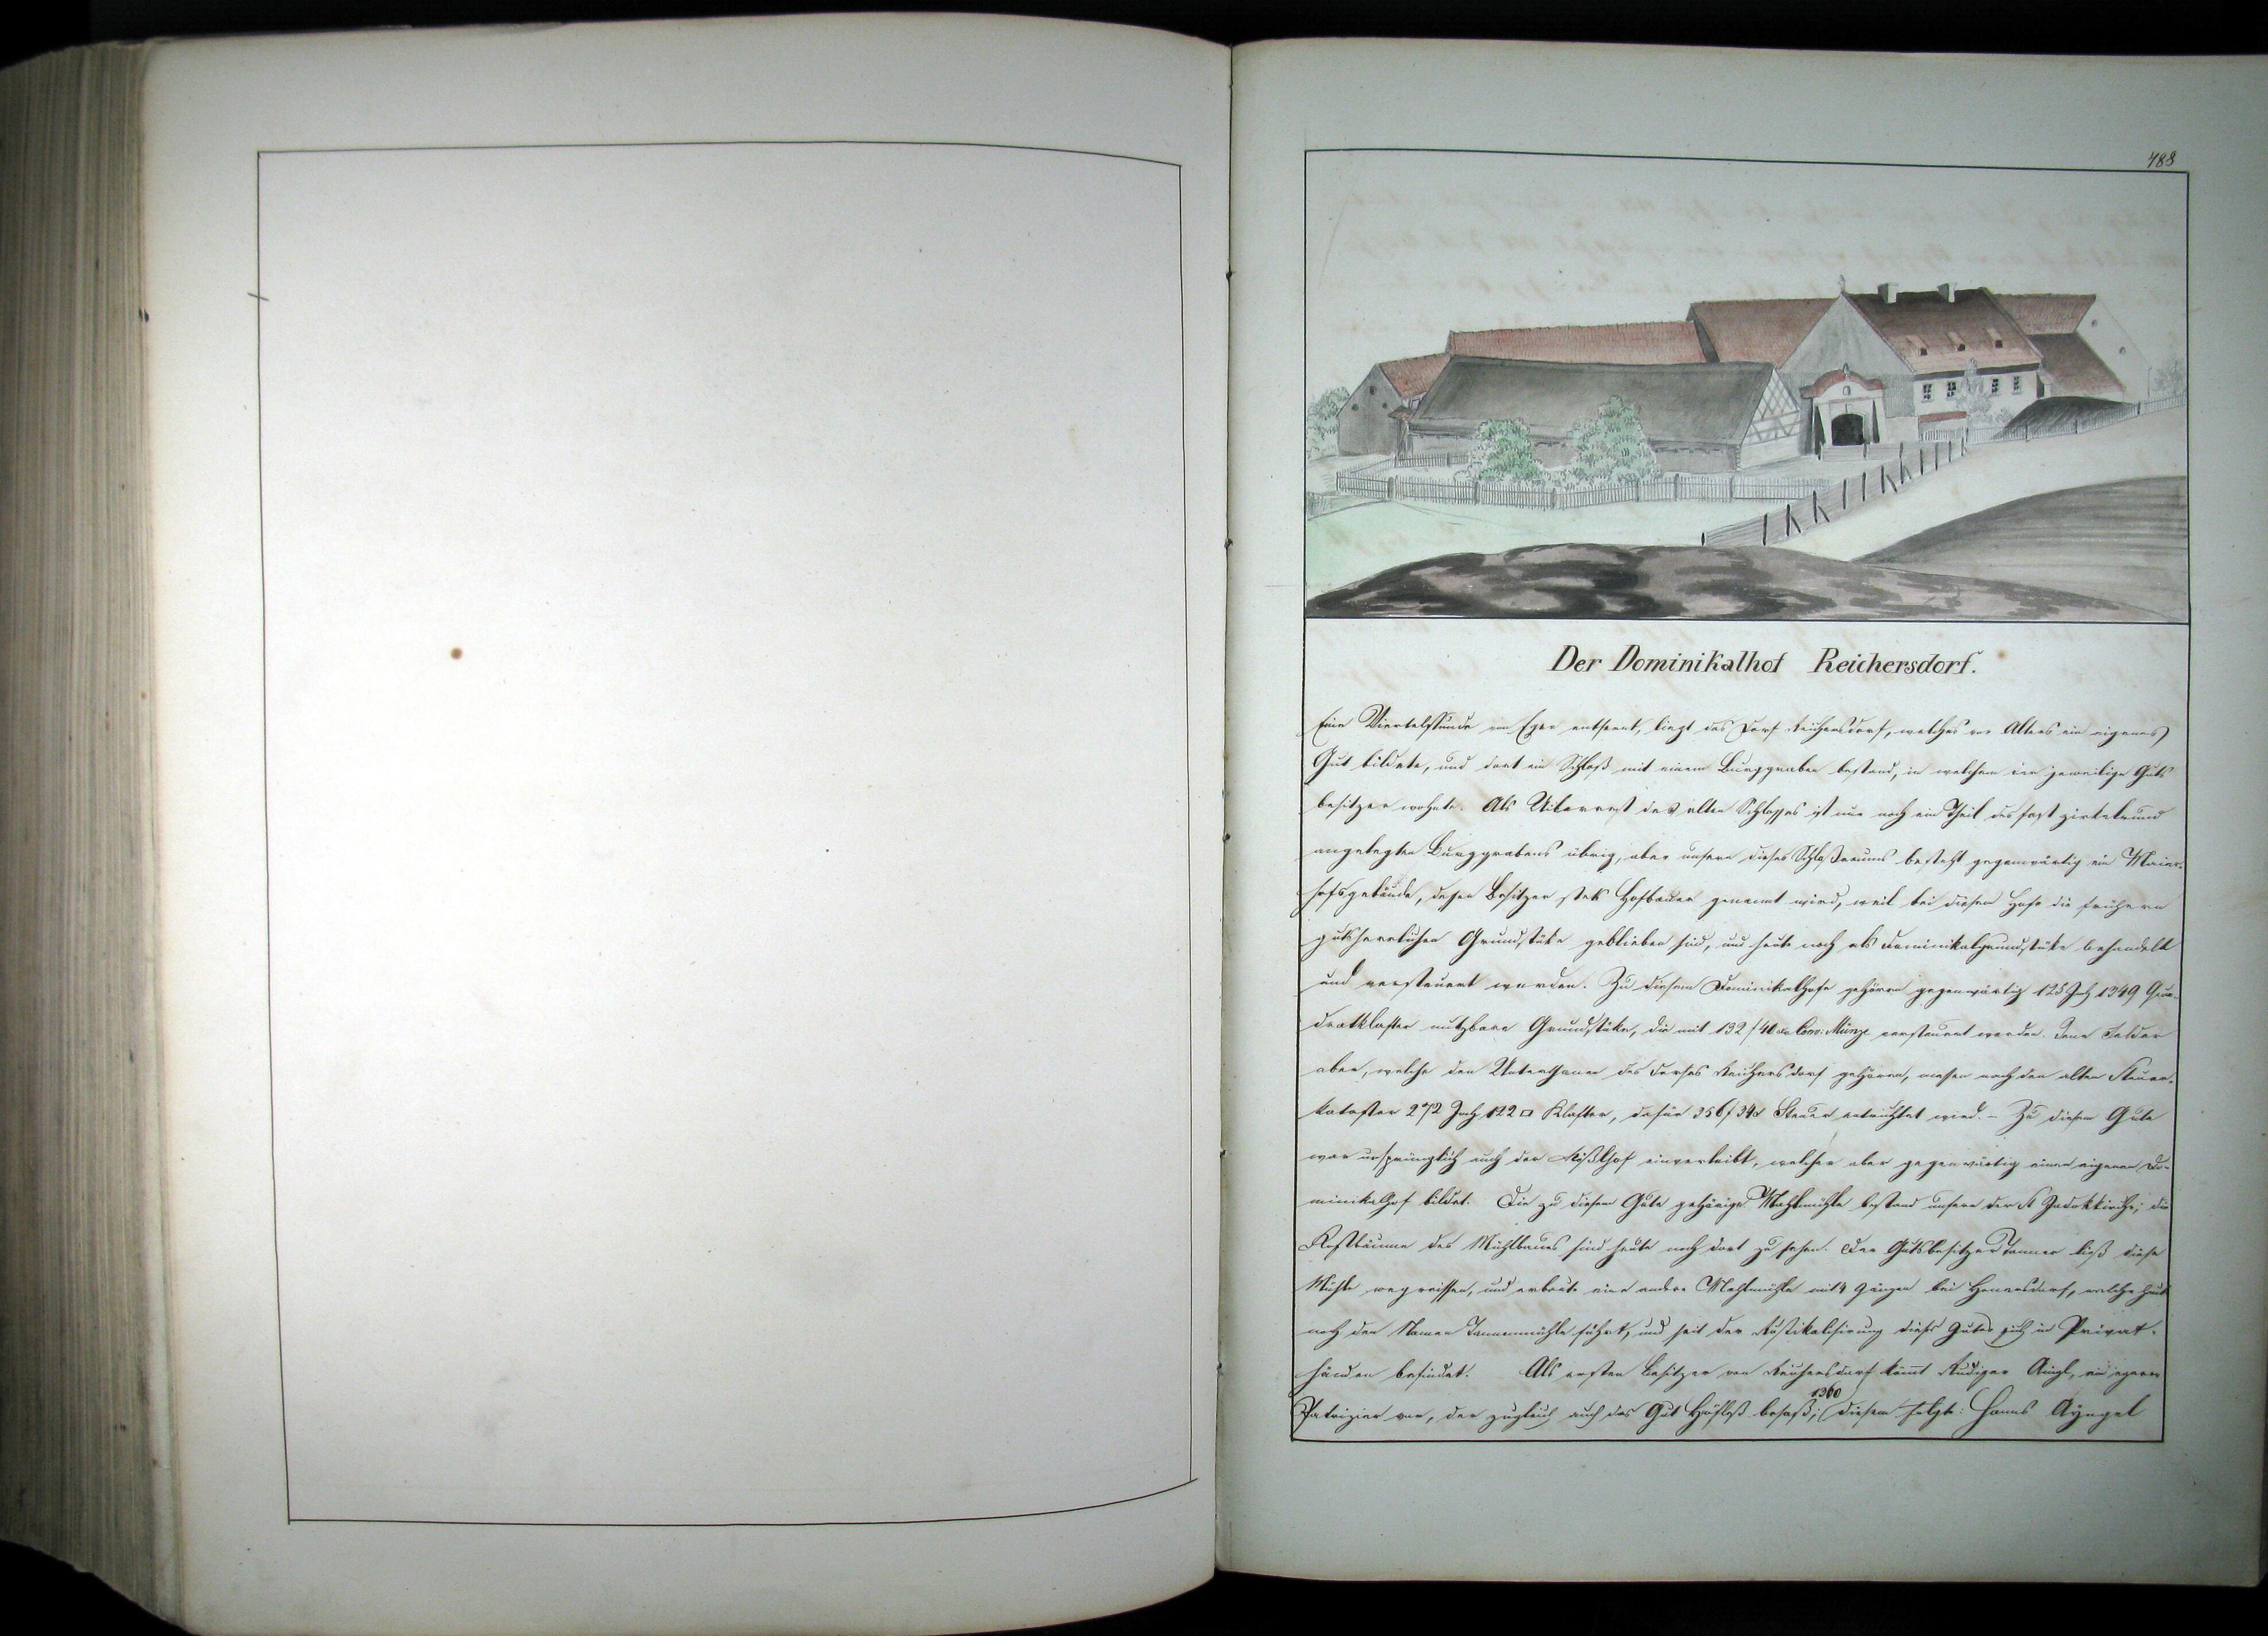 488
Der Dominikalhof Reichersdorf.
Eine Viertelstunde von Eger entfernt, liegt das Dorf Reichersdorf, welches vor Alters ein eigenes
Gut bildete, und dort ein Schloß mit einem Burggraben bestand, in welchem der jeweilige Guts
besitzer wohnte. Als Uiberrest des alten Schlosses ist nur noch ein Theil des fast zirkelrund
angelegten Burggrabens übrig, aber unfern dieses Schloßraums besteht gegenwärtig ein Maier-
hofsgebäude, dessen Besitzer stets Hofbauer genannt wird, weil bei diesem Hofe die frühern
gutsherrlichen Grundstüke geblieben sind, und heute noch als Dominikalgrundstüke behandelt
und versteuert werden. Zu diesem Dominikalhofe gehören gegenwärtig 125 Joch 1349 Qua-
dratklafter nutzbare Grundstüke, die mit 132 f 40 Conv: Münze versteuert werden. Jene Felder
aber, welche den Unterthanen des Dorfes Reichersdorf gehören, messen nach den alten Steuer-
kataster 272 Joch 122 □ Klafter, dafür 356 f 34 Steuer entrichtet wird. - Zu diesem Gute
war ursprünglich auch der einverleibt, welcher aber gegenwärtig einen eigenen Do-
minikalhof bildet. Die zu diesem Gute gehörige Mahlmühle bestand unfern der St Jodokkirche; die
Rostbäume des Mühlbaues sind heute noch dort zu sehen. Der Gutsbesitzer Tanner ließ diese
Mühle wegreissen, und erbaute eine andere Mahlmühle mit 4 Gängen bei, welche heut
noch den Namen Tannenmühle führt, und seit der Rustikalisirung dieses Gutes sich in Privat-
händen befindet. Als ersten Besitzer von Reichersdorf kömt Rudiger Aingl, ein egerer
Patrizier vor, der zugleich auch das Gut Höflaß besaß; 1360 diesem folgte: Hanns Ayngel